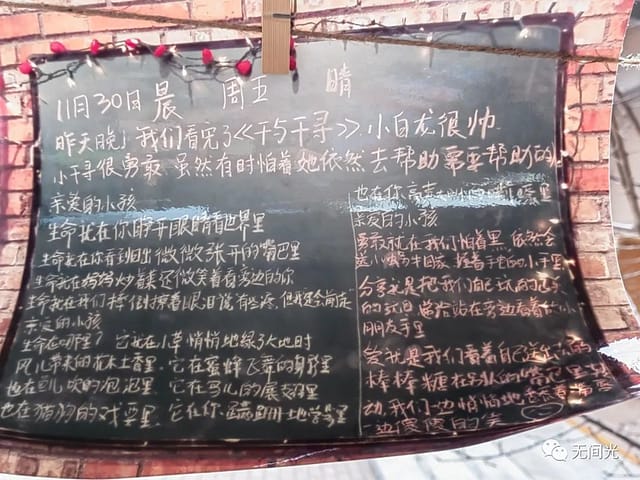 11月30日 晨 周五 晴
昨天晚上我们看完了《千与千寻》.小白龙很帅
小千寻很勇敢.虽然有时怕着她依然去帮助需要帮助的
亲爱的小孩
生命就在你睁开眼睛看世界里
生命就在你看到日出微微张开的嘴巴里
生命就在妈妈炒着菜还微笑着看旁边的你
生命就在我们摔倒擦着眼泪说有些疼,但我
亲爱的小孩
生命在哪里? 它就在小草悄悄地绿了大地时
风儿带来的花木香里.它在蜜蜂飞舞的身影里
也在 吹的泡泡里 它在马儿的 里
也在猪狗的对 里 它在你 地 里
也在你高声 里
亲爱的小孩
勇敢就在我们怕着黑,依然会
小 回家,握着 的小手里
分享就是把我们自己 的
的玩具 给站在旁边看着的小
朋友手里
爱就是我们看着自己
棒棒糖在别人的嘴巴里
动.我们一边悄悄地
一边傻傻的笑
无间光